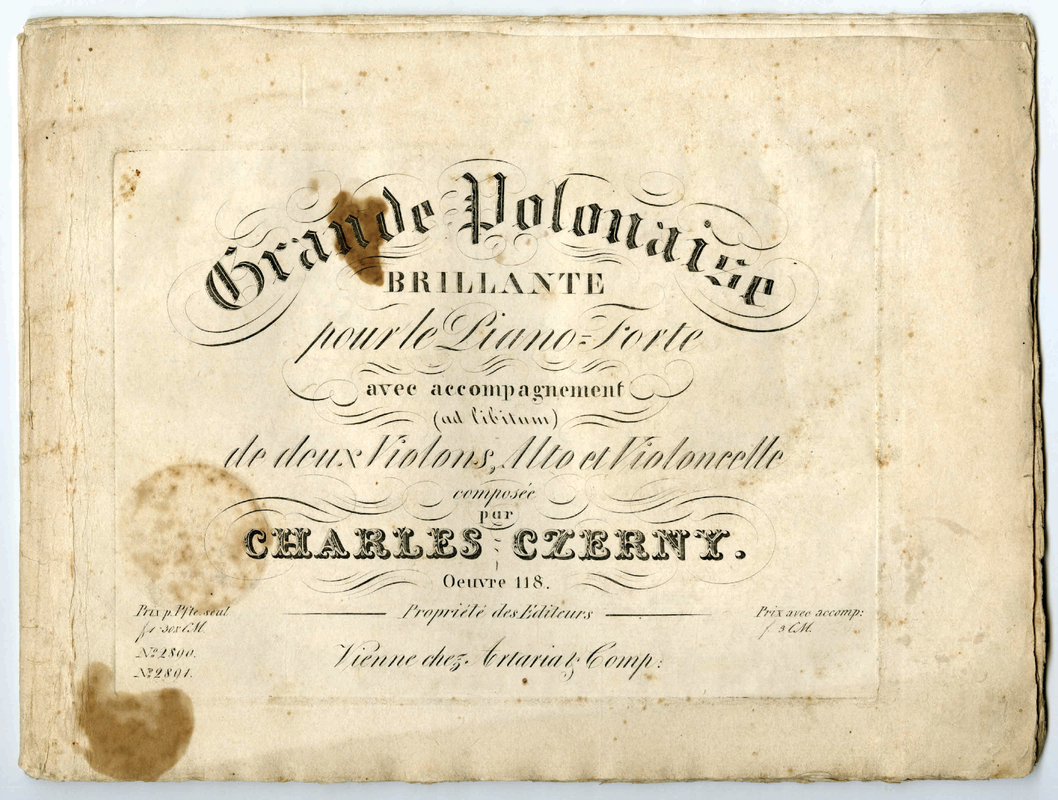 Grande Polonaise
BRILLANTE
pour le Piano=Forte
avec accompagnement
(ad libitum)
de deux Violons, Alto et Violoncelle
composée
par
CHARLES CZERNY.
Oeuvre 118.
Prix p. Pfte. seul
f 1·30x C.M.
Propriété des Editeurs
Prix avec accomp:
f. 3 C.M.
No. 2890.
No. 2891.
Vienne chez Artaria & Comp: